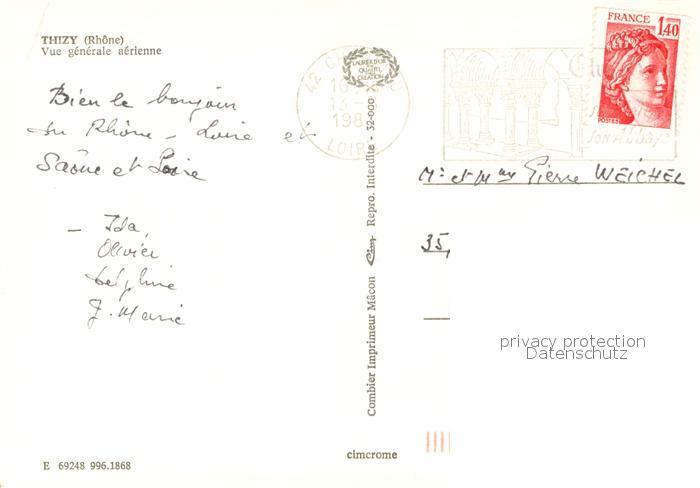 THIZY (Rhône)
Vue générale aérienne
Bien le bonjour
du Rhône - Loire et
Saône et Loire
- Ida,
Olivier
Delphine
J. Marie
E 69248 996.1868
cimcrome
Combier Imprimeur Mâcon Cim Repro. Interdite - 32-000
LAURIER D'OR
DE LA
QUALITÉ
CREATION
42
LOIRE
FRANCE
1,40
POSTES
SON ABBAYE
Mr et Mme Pierre WEICHEL
35,
privacy protection
Datenschutz